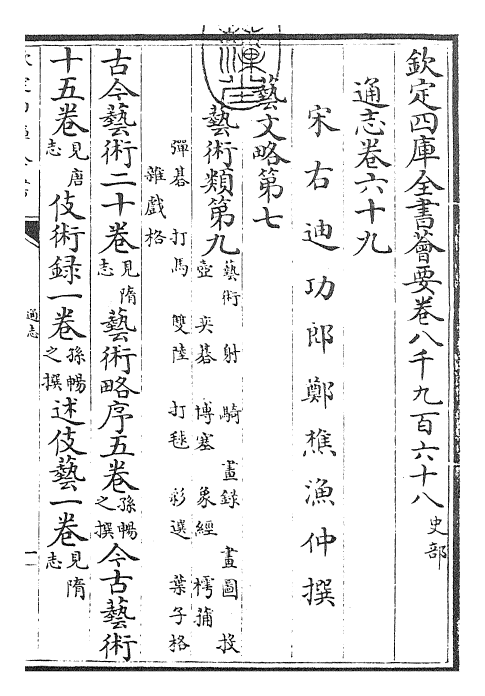 欽定四庫全書薈要卷八千九百六十八 史部
通志卷六十九
宋右迪功郎鄭樵漁仲撰
藝文略第七
藝術類第九 藝術 射 騎 畫録 畫圖 投
壺 奕碁 博塞 象經 樗蒱
彈碁 打馬 雙陸 打毬 彩選 葉子格
雜戲格
古今藝術二十卷 見隋志 藝術略序五卷 孫暢之撰 今古藝術
十五卷 見唐志 伎術録一卷 孫暢之撰 述伎藝一卷 見隋志
通志